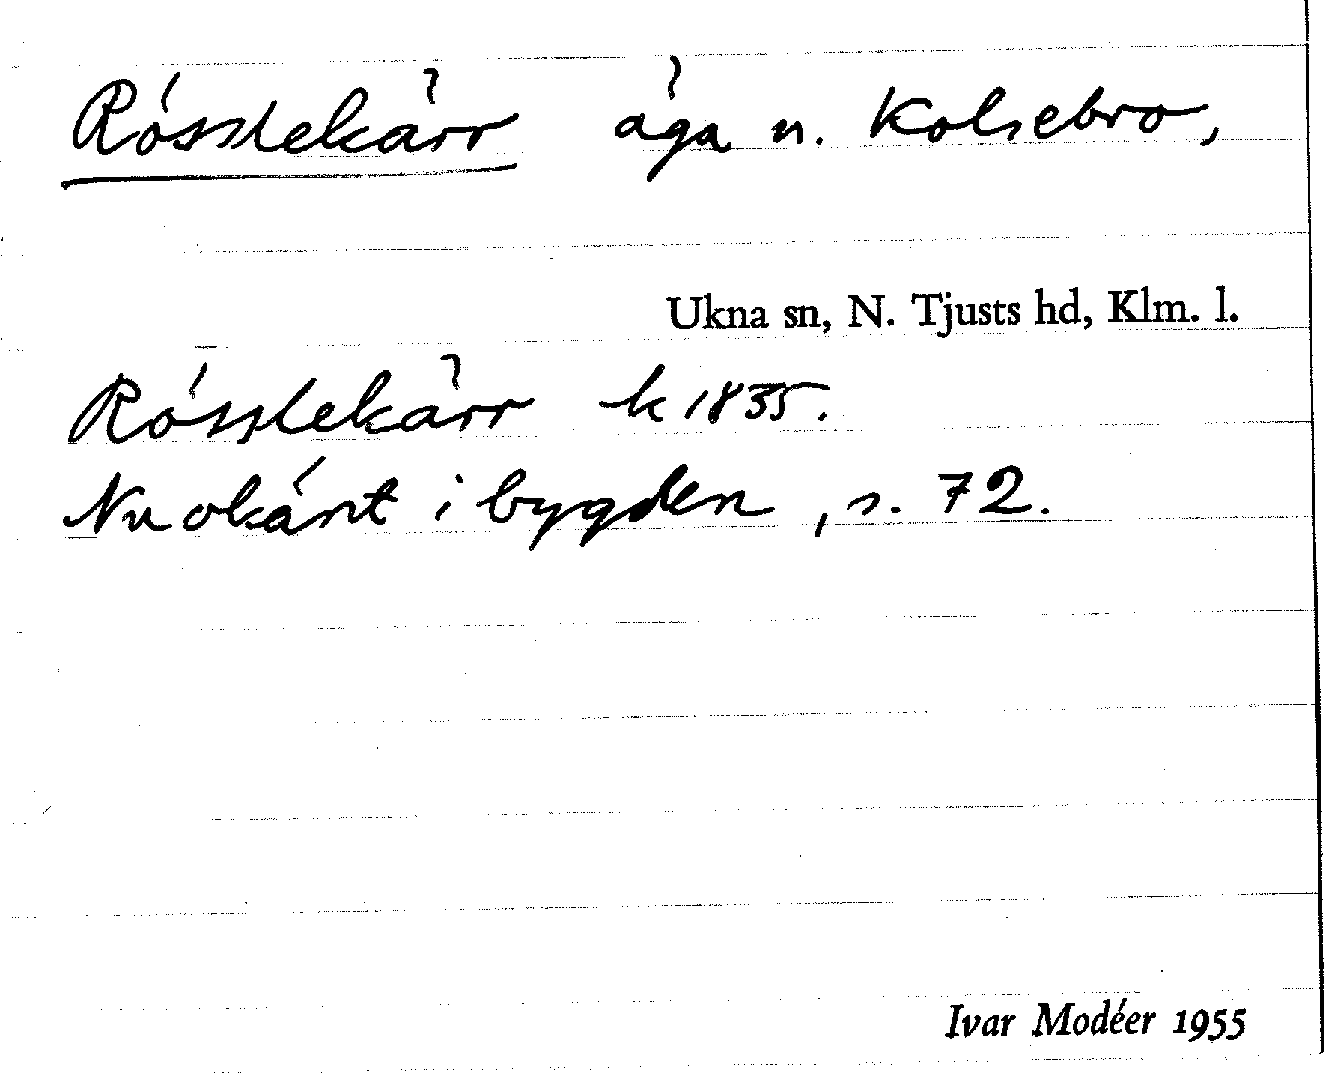 Rösslekärr äga n. Kolsebro,
Ukna sn, N. Tjusts hd, Klm. l.
Rösslekärr k 1835.
Nu okänt i bygden, s. 72.
Ivar Modéer 1955